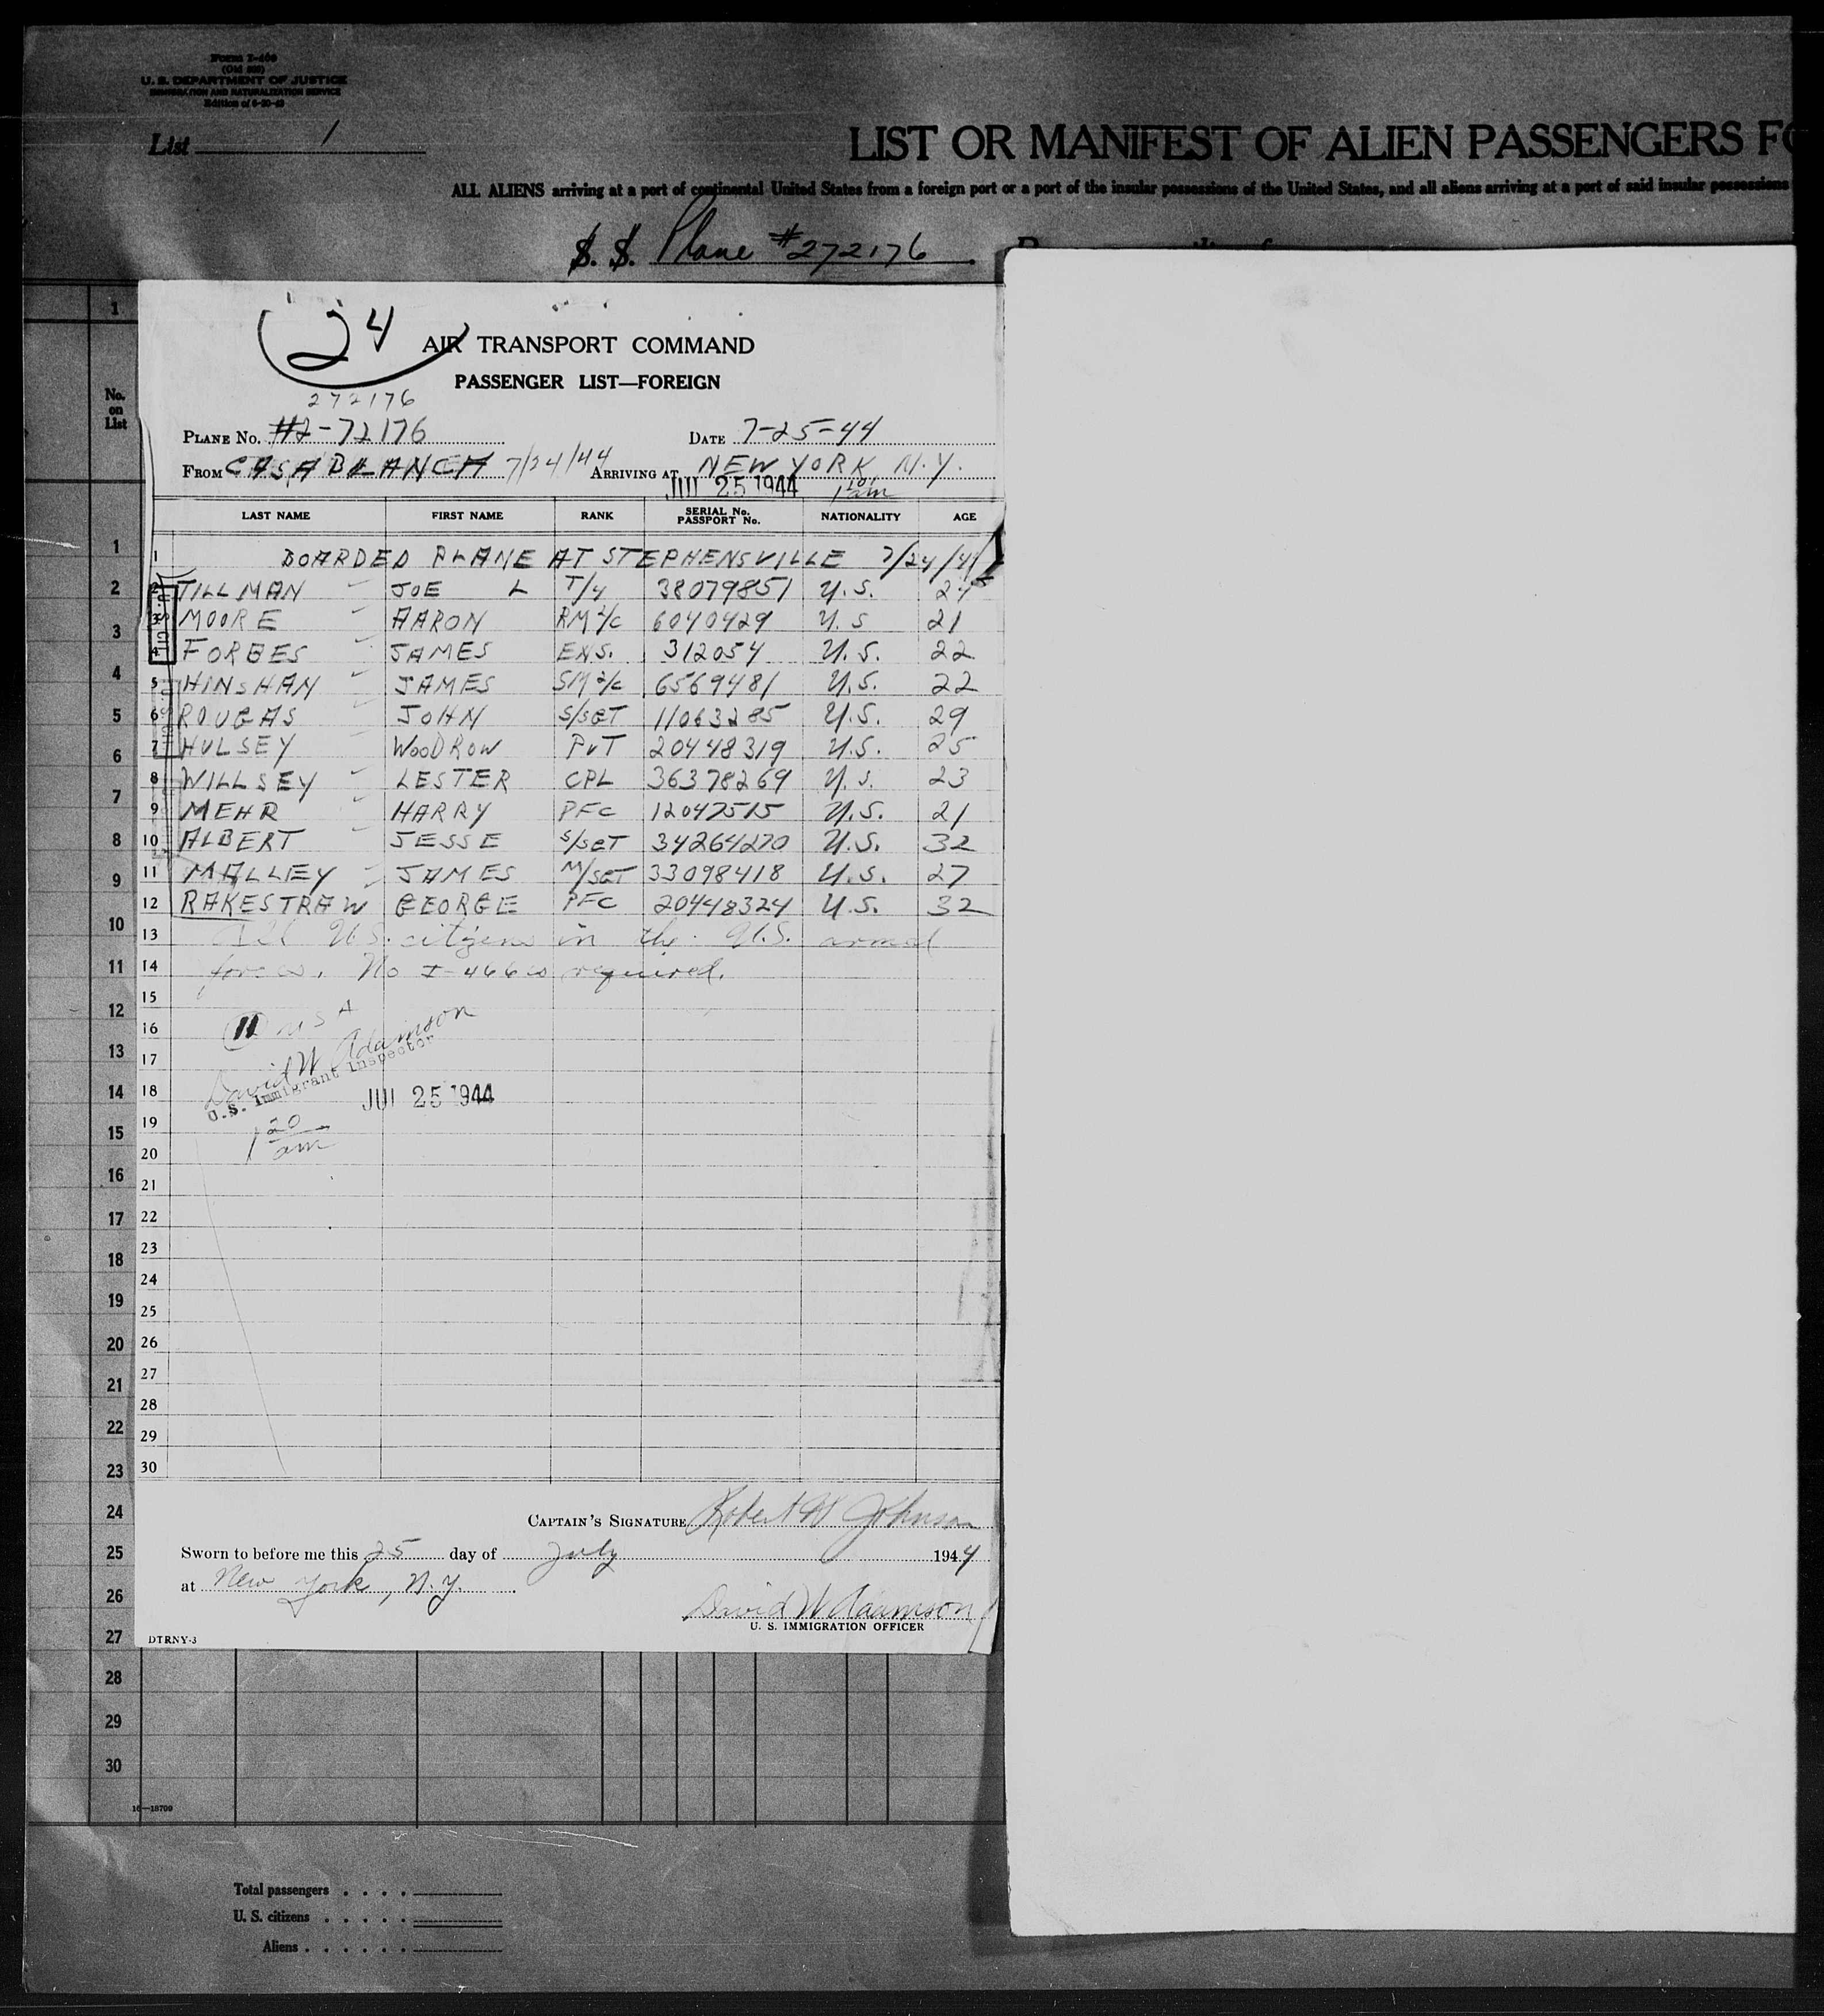 Form I-466
(Old 500)
U. S. DEPARTMENT OF JUSTICE
IMMIGRATION AND NATURALIZATION SERVICE
Edition of 6-20-43
List 1
LIST OR MANIFEST OF ALIEN PASSENGERS FO
ALL ALIENS arriving at a port of continental United States from a foreign port or a port of the insular possessions of the United States, and all aliens arriving at a port of said insular possessions
S. S. Plane #272176
24
AIR TRANSPORT COMMAND
PASSENGER LIST—FOREIGN
272176
PLANE No. #2-72176 DATE 7-25-44
FROM CASABLANCA 7/24/44 ARRIVING AT NEW YORK N.Y.
JUL 25 1944 1 01 am
No. on List
LAST NAME FIRST NAME RANK SERIAL No. PASSPORT No. NATIONALITY AGE
1 BOARDED PLANE AT STEPHENSVILLE 7/24/44
2 TILLMAN JOE L T/4 38079851 U.S. 24
3 MOORE AARON RM 2/c 6040429 U.S 21
4 FORBES JAMES ENS. 312054 U.S. 22
5 HINSHAW JAMES SM 2/c 6569481 U.S. 22
6 ROUGAS JOHN S/SGT 11063285 U.S. 29
7 HULSEY WOODROW PVT 20448319 U.S. 25
8 WILLSEY LESTER CPL 36378269 U.S. 23
9 MEHR HARRY PFC 12047515 U.S. 21
10 ALBERT JESSE S/SGT 34264270 U.S. 32
11 MALLEY JAMES M/SGT 33098418 U.S. 27
12 RAKESTRAW GEORGE PFC 20448324 U.S. 32
13 All U.S. citizens in the U.S. armed
14 forces. No I-466 is required.
15
16 11 USA
17 David W Adamson
U.S. Immigrant Inspector
18 JUL 25 1944
19 1 20
20 am
21
22
23
24
25
26
27
28
29
30
CAPTAIN'S SIGNATURE Robert W Johnson
Sworn to before me this 25 day of July 1944
at New York, N.Y.
David W Adamson
U. S. IMMIGRATION OFFICER
DTRNY-3
1
1
2
3
4
5
6
7
8
9
10
11
12
13
14
15
16
17
18
19
20
21
22
23
24
25
26
27
28
29
30
16—18709
Total passengers
U. S. citizens
Aliens